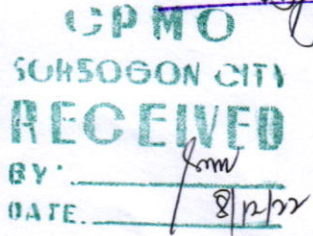 CPMO
SORSOGON CITY
RECEIVED
BY:
DATE. 8/12/22